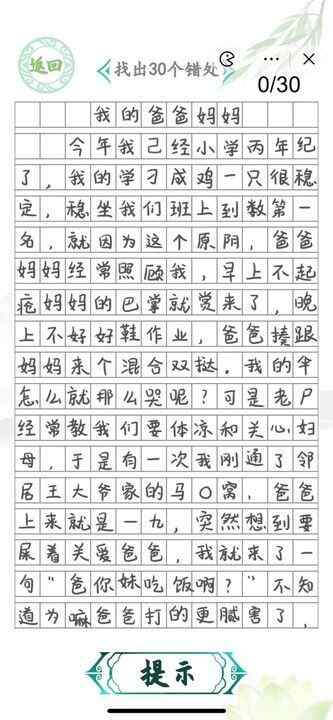 返回
找出30个错处
0/30
我的爸爸妈妈
今年我己经小学丙年纪
了，我的学刁成鸡一只很穗
定，穗坐我们班上到数第一
名，就因为这个原阴，爸爸
妈妈经常照顾我，早上不起
疮妈妈的巴掌就觉来了，晚
上不好好鞋作业，爸爸揍跟
妈妈来个混合双挞．我的华
怎么就那么哭呢？可是老尸
经常教我们要体凉和关心妇
母，于是有一次我刚通了邻
居王大爷家的马〇窝，爸爸
上来就是一九，突然想到要
尿着关爱爸爸，我就来了一
句“爸你妹吃饭啊？”不知
道为嘛爸爸打的更腻害了，
提示